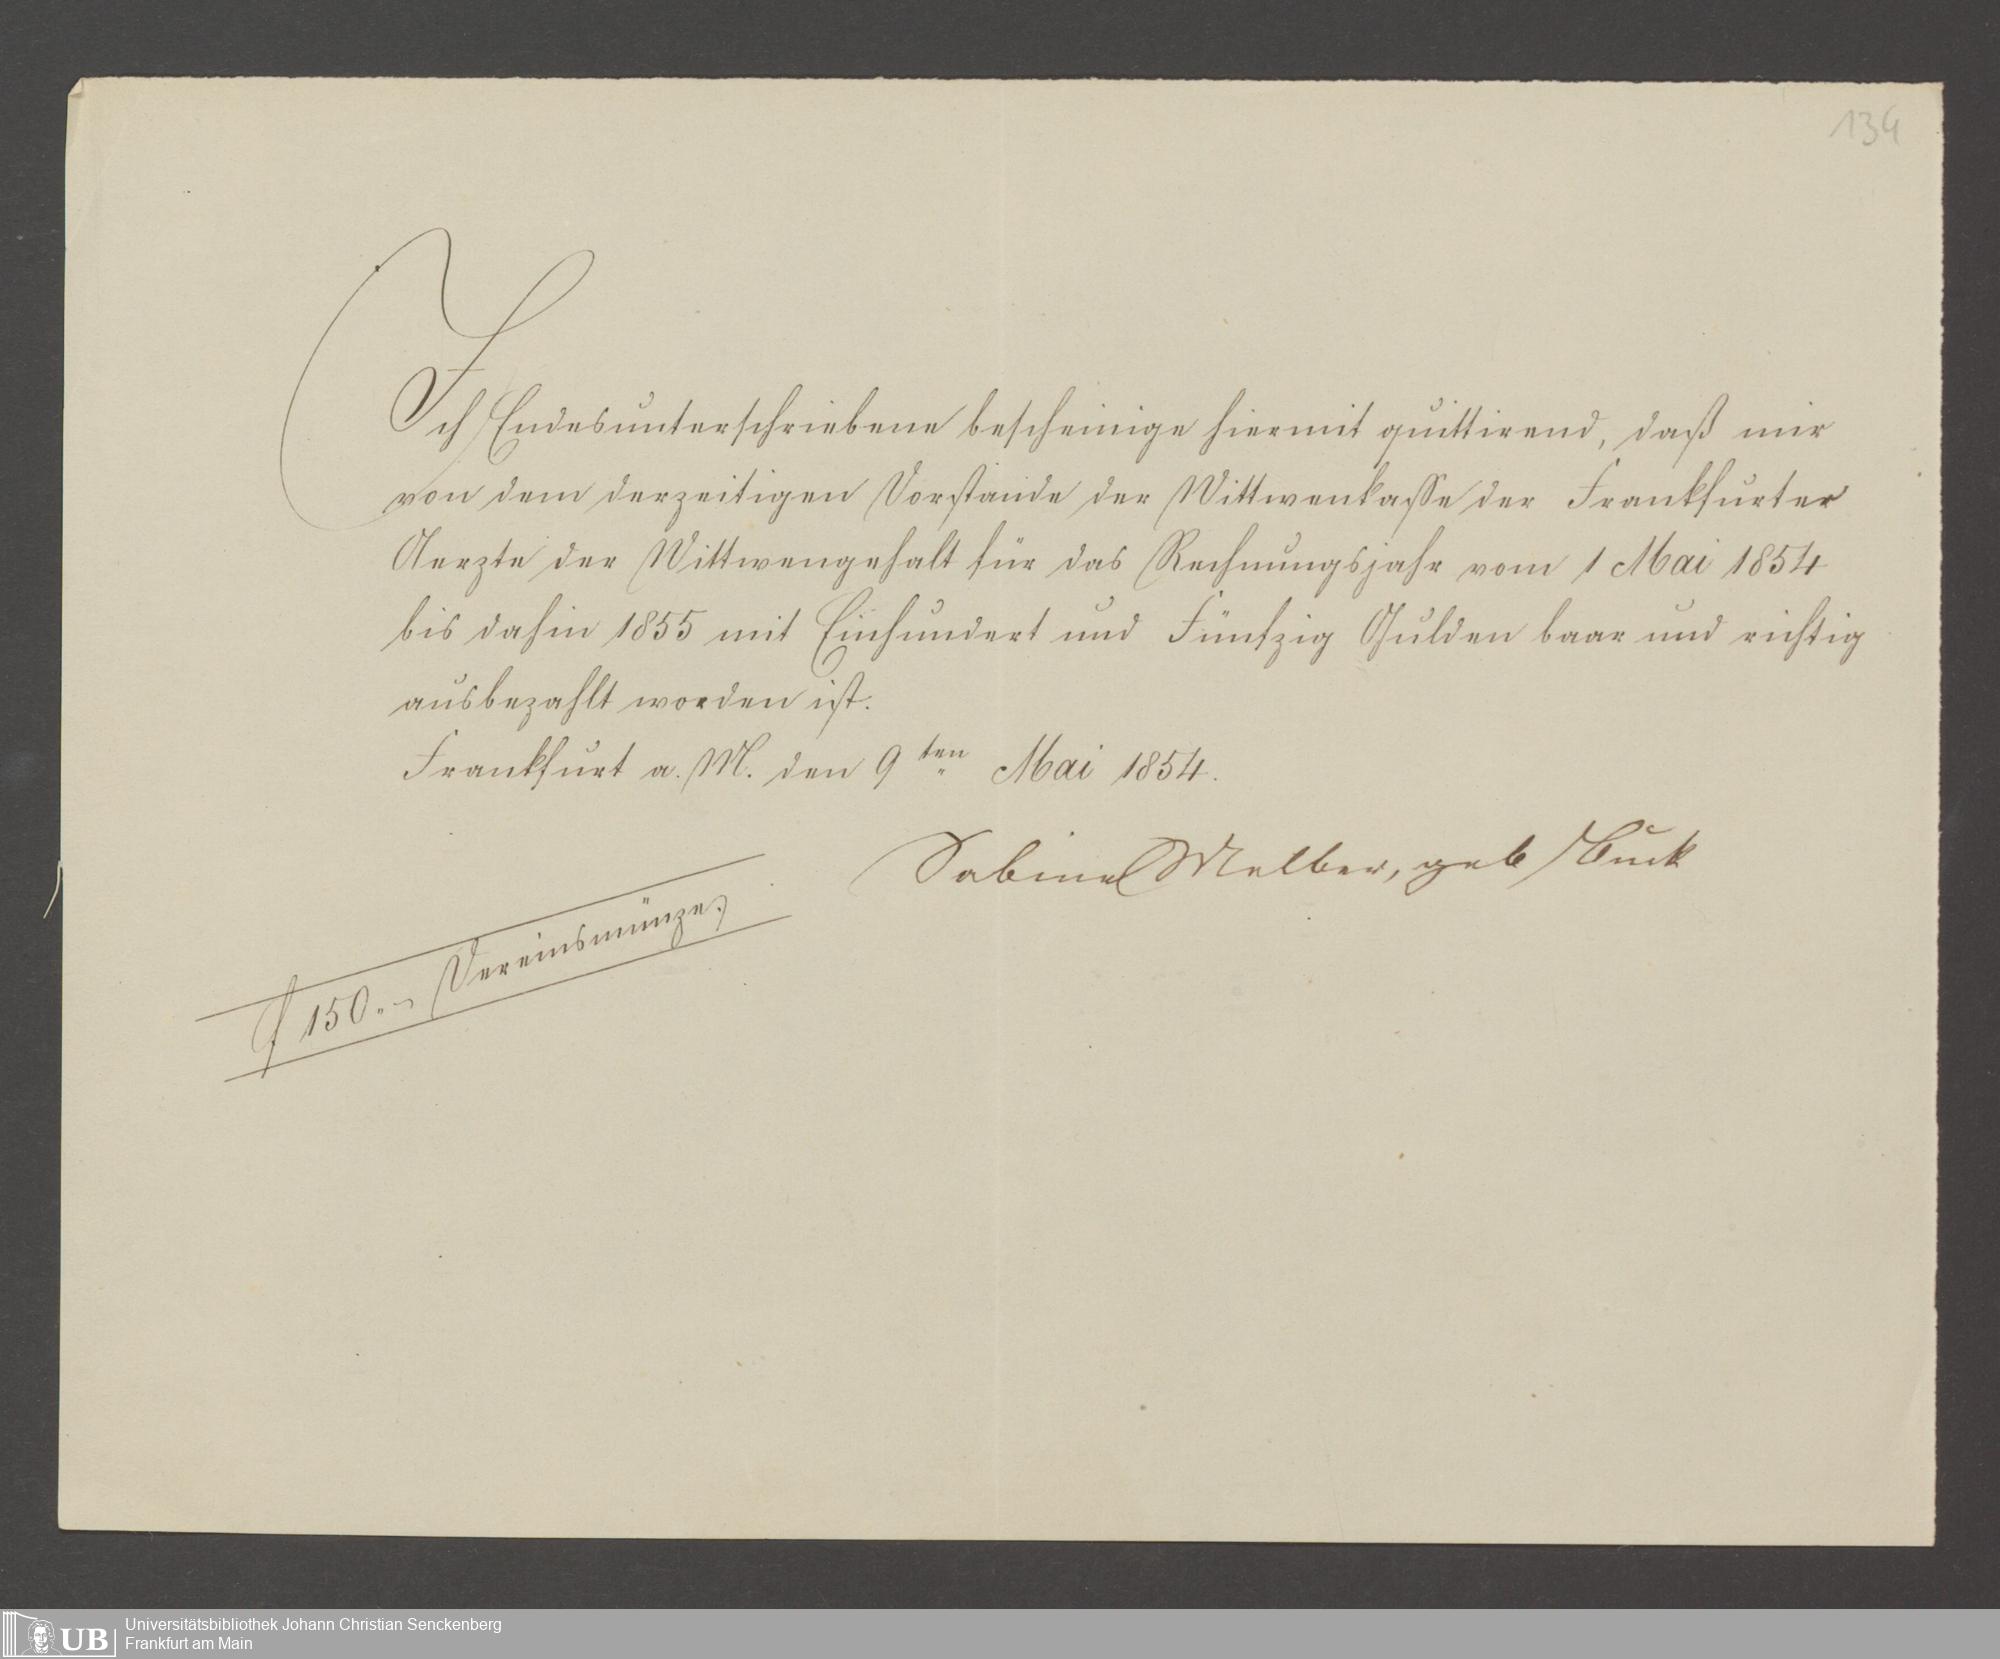 134
Ich Endesunterschriebene bescheinige hiermit quittirend, daß mir
von dem derzeitigen Vorstande der Wittwenkasse der Frankfurter
Aerzte der Wittwengehalt für das Rechnungsjahr vom 1 Mai 1854
bis dahin 1855 mit Einhundert und Fünfzig Gulden baar und richtig
ausbezahlt worden ist.
Frankfurt a. M. den 9ten Mai 1854.
Sabine Melber, geb Buck
f 150.- Vereinsmünze.
UB
Universitätsbibliothek Johann Christian Senckenberg
Frankfurt am Main